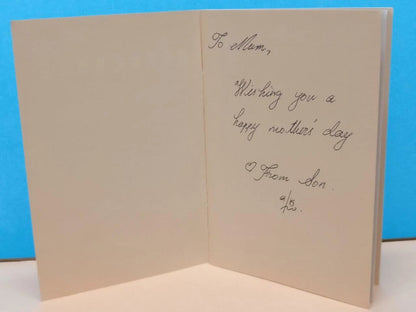 To Mum,
Wishing you a
happy mother's day
♡ From Son.